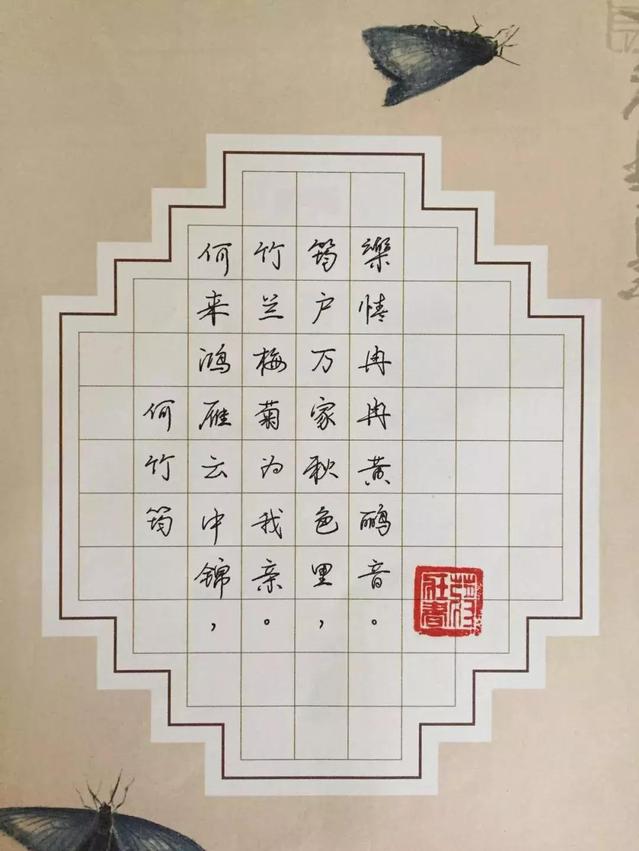 何竹筠
何来鸿雁云中锦，
竹兰梅菊为我亲。
筠户万家秋色里，
樂情冉冉黄鹂音。